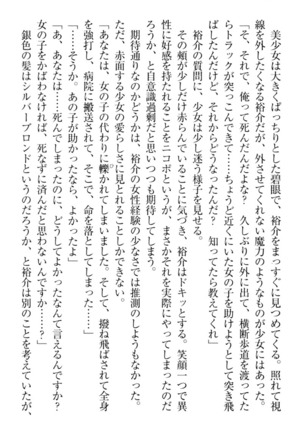 美少女は大きくぱっちりとした碧眼で、裕介をまっすぐに見つめてくる。照れて視
線を外したくなる裕介だが、外させてくれない魔力のようなものが少女にはあった。
「そ、それで、俺って死んだんだよな？　久しぶりに外に出て、横断歩道を渡ってた
らトラックが突っこんできて……ちょうど近くにいた女の子を助けようとして突き飛
ばしたんだけど、それからどうなったんだ？　知ってたら教えてくれ」
裕介の質問に、少女は少し迷う様子を見せる。
その頰が少しだけ赤らんでいることに気づき、裕介はドキッとする。笑顔一つで異
性に好感を持たれることをニコポというが、まさかそれを実際にやってしまったのだ
ろうか、と自意識過剰だと思いつつも期待してしまう。
期待通りなのかどうかは、裕介の女性経験の少なさでは推測のしようもなかった。
ただ、赤面する少女の愛らしさに見とれることしかできない。
「あなたは、女の子の代わりに轢かれてしまいました。そして、撥ね飛ばされて全身
を強打し、病院に搬送されて、そこで、命を落としてしまった……」
「……そうか。あの子が助かったなら、よかったよ」
「あ、あなたは……死んでしまったのに、どうしてよかったなんて言えるんですか？
女の子をかばわなければ、死なずに済んだと思わないんですか……？」
銀色の髪はシルバーブロンドというのだろうか、と裕介は別のことを考えていたが、